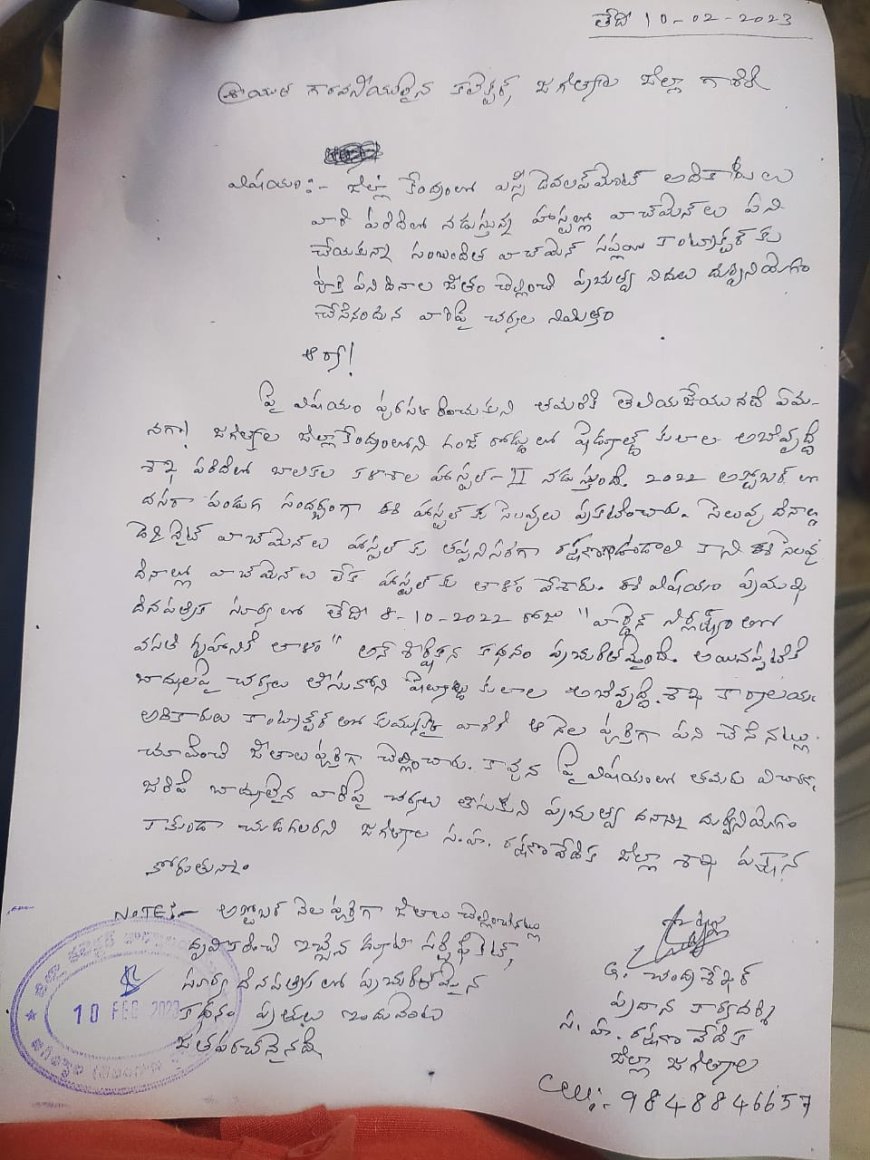 తేదీ 10-02-2023
శ్రీయుత గౌరవనీయులైన కలెక్టర్, జగిత్యాల జిల్లా గారికి
విషయం:- జిల్లా కేంద్రంలో ఎస్సీ డెవలప్‌మెంట్ అధికారులు
వారి పరిధిలో నడుస్తున్న హాస్టల్లో వాచ్‌మెన్ లు పని
చేయకున్నా సంబంధిత వాచ్‌మెన్ సప్లయి కాంట్రాక్టర్ కు
పూర్తి పనిదినాల జీతం చెల్లించి ప్రభుత్వ నిధులు దుర్వినియోగం
చేసినందున వారిపై చర్యల నిమిత్తం
ఆర్యా!
పై విషయం పురస్కరించుకుని తమరికి తెలియజేయునది ఏమ-
నగా! జగిత్యాల జిల్లాకేంద్రంలోని గంజ్ రోడ్డులో షెడ్యూల్డ్ కులాల అభివృద్ధి
శాఖ పరిధిలో బాలికల కళాశాల హాస్టల్-II నడుస్తుంది. 2022 అక్టోబర్ లో
దసరా పండుగ సందర్భంగా ఈ హాస్టల్ కు సెలవులు ప్రకటించారు. సెలవు దినాల్లో
డే & నైట్ వాచ్‌మెన్ లు హాస్టల్ కు తప్పనిసరిగా రక్షణగా ఉండాలి కాని ఈ సెలవు
దినాల్లో వాచ్‌మెన్ లు లేక హాస్టల్ కు తాళం వేశారు. ఈ విషయం ప్రముఖ
దినపత్రిక సూర్య లో తేదీ 8-10-2022 రోజు "వార్డెన్ నిర్లక్ష్యంతో
వసతి గృహానికి తాళం" అనే శీర్షికన కథనం ప్రచురితమైంది. అయినప్పటికీ
బాధ్యులపై చర్యలు తీసుకోని షెడ్యూల్డు కులాల అభివృద్ధి శాఖ కార్యాలయ
అధికారులు కాంట్రాక్టర్ తో కుమ్మక్కై వారికి ఆ నెల పూర్తిగా పని చేసినట్లు
చూపించి జీతాలు పూర్తిగా చెల్లించారు. కావున పై విషయంలో తమరు విచారణ
జరిపి బాధ్యులైన వారిపై చర్యలు తీసుకుని ప్రభుత్వ ధనాన్ని దుర్వినియోగం
కాకుండా చూడగలరని జగిత్యాల స.హ. రక్షణ వేదిక జిల్లా శాఖ పక్షాన
కోరుతున్నాం
NOTE:- అక్టోబర్ నెల పూర్తిగా జీతాలు చెల్లించినట్లు
ధృవీకరించి ఇచ్చిన డ్యూటీ సర్టిఫికెట్,
సూర్య దినపత్రిక లో ప్రచురితమైన
కథనం ప్రతులు ఇందువెంట
జతపరచనైనది
చంద్రశేఖర్
ప్రధాన కార్యదర్శి
స.హ. రక్షణ వేదిక
జిల్లా జగిత్యాల
Cell:- 9848846657
10 FEB 2023